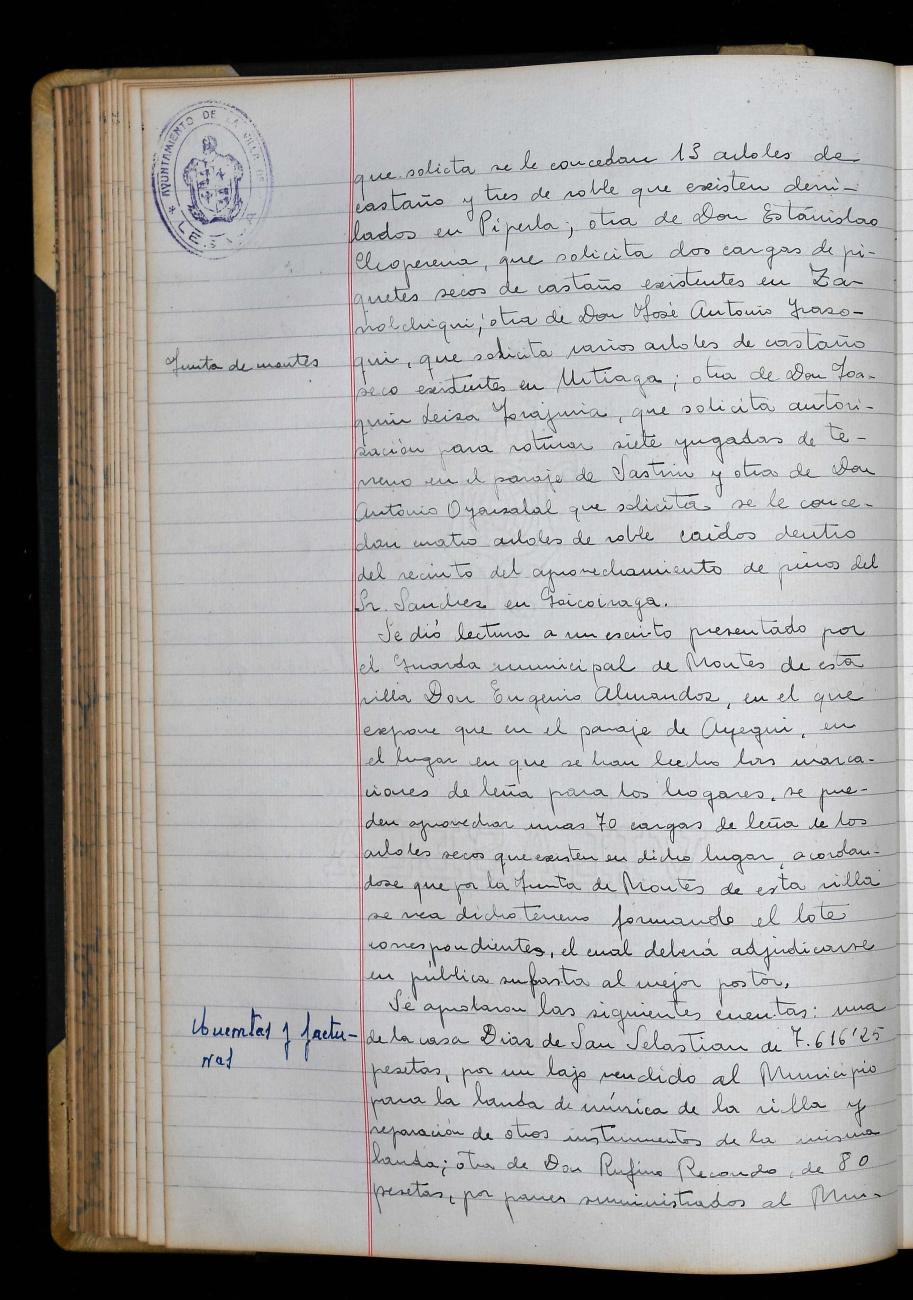 AYUNTAMIENTO DE LA VILLA DE
LESACA
que solicita se le concedan 13 arboles de
castaño y tres de roble que existen derri-
bados en Piperla; otra de Don Estánislao
Choperena, que solicita dos cargas de pi-
quetes secos de castaño existentes en Za-
rralchiqui; otra de Don José Antonio Iraso-
Junta de montes
qui, que solicita varios arboles de castaño
seco existentes en Urtiaga; otra de Don Joa-
quin Leiza Jorajuria, que solicita autori-
zación para roturar siete yugadas de te-
rreno en el paraje de Sastrin y otra de Don
Antonio Oyarzabal que solicita se le conce-
dan cuatro arboles de roble caidos dentro
del recinto del aprovechamiento de pinos del
Sr. Sanchez en Goicoiraga.
Se dió lectura a un escrito presentado por
el Guarda municipal de Montes de esta
villa Don Eugenio Almandoz, en el que
expone que en el paraje de Ayegui, en
el lugar en que se han hecho las marca-
ciones de leña para los hogares, se pue-
den aprovechar unas 70 cargas de leña de los
arboles secos que existen en dicho lugar, acordan-
dose que por la Junta de Montes de esta villa
se vea dicho terreno formando el lote
correspondientes, el cual deberá adjudicarse
en pública subasta al mejor postor.
Se aprobaron las siguientes cuentas: una
Cuentas y factu-
ras
de la casa Diaz de San Sebastian de 7.616'25
pesetas, por un bajo vendido al Municipio
para la banda de música de la villa y
reparación de otros instrumentos de la misma
banda; otra de Don Rufino Recondo, de 80
pesetas, por panes suministrados al Muni-